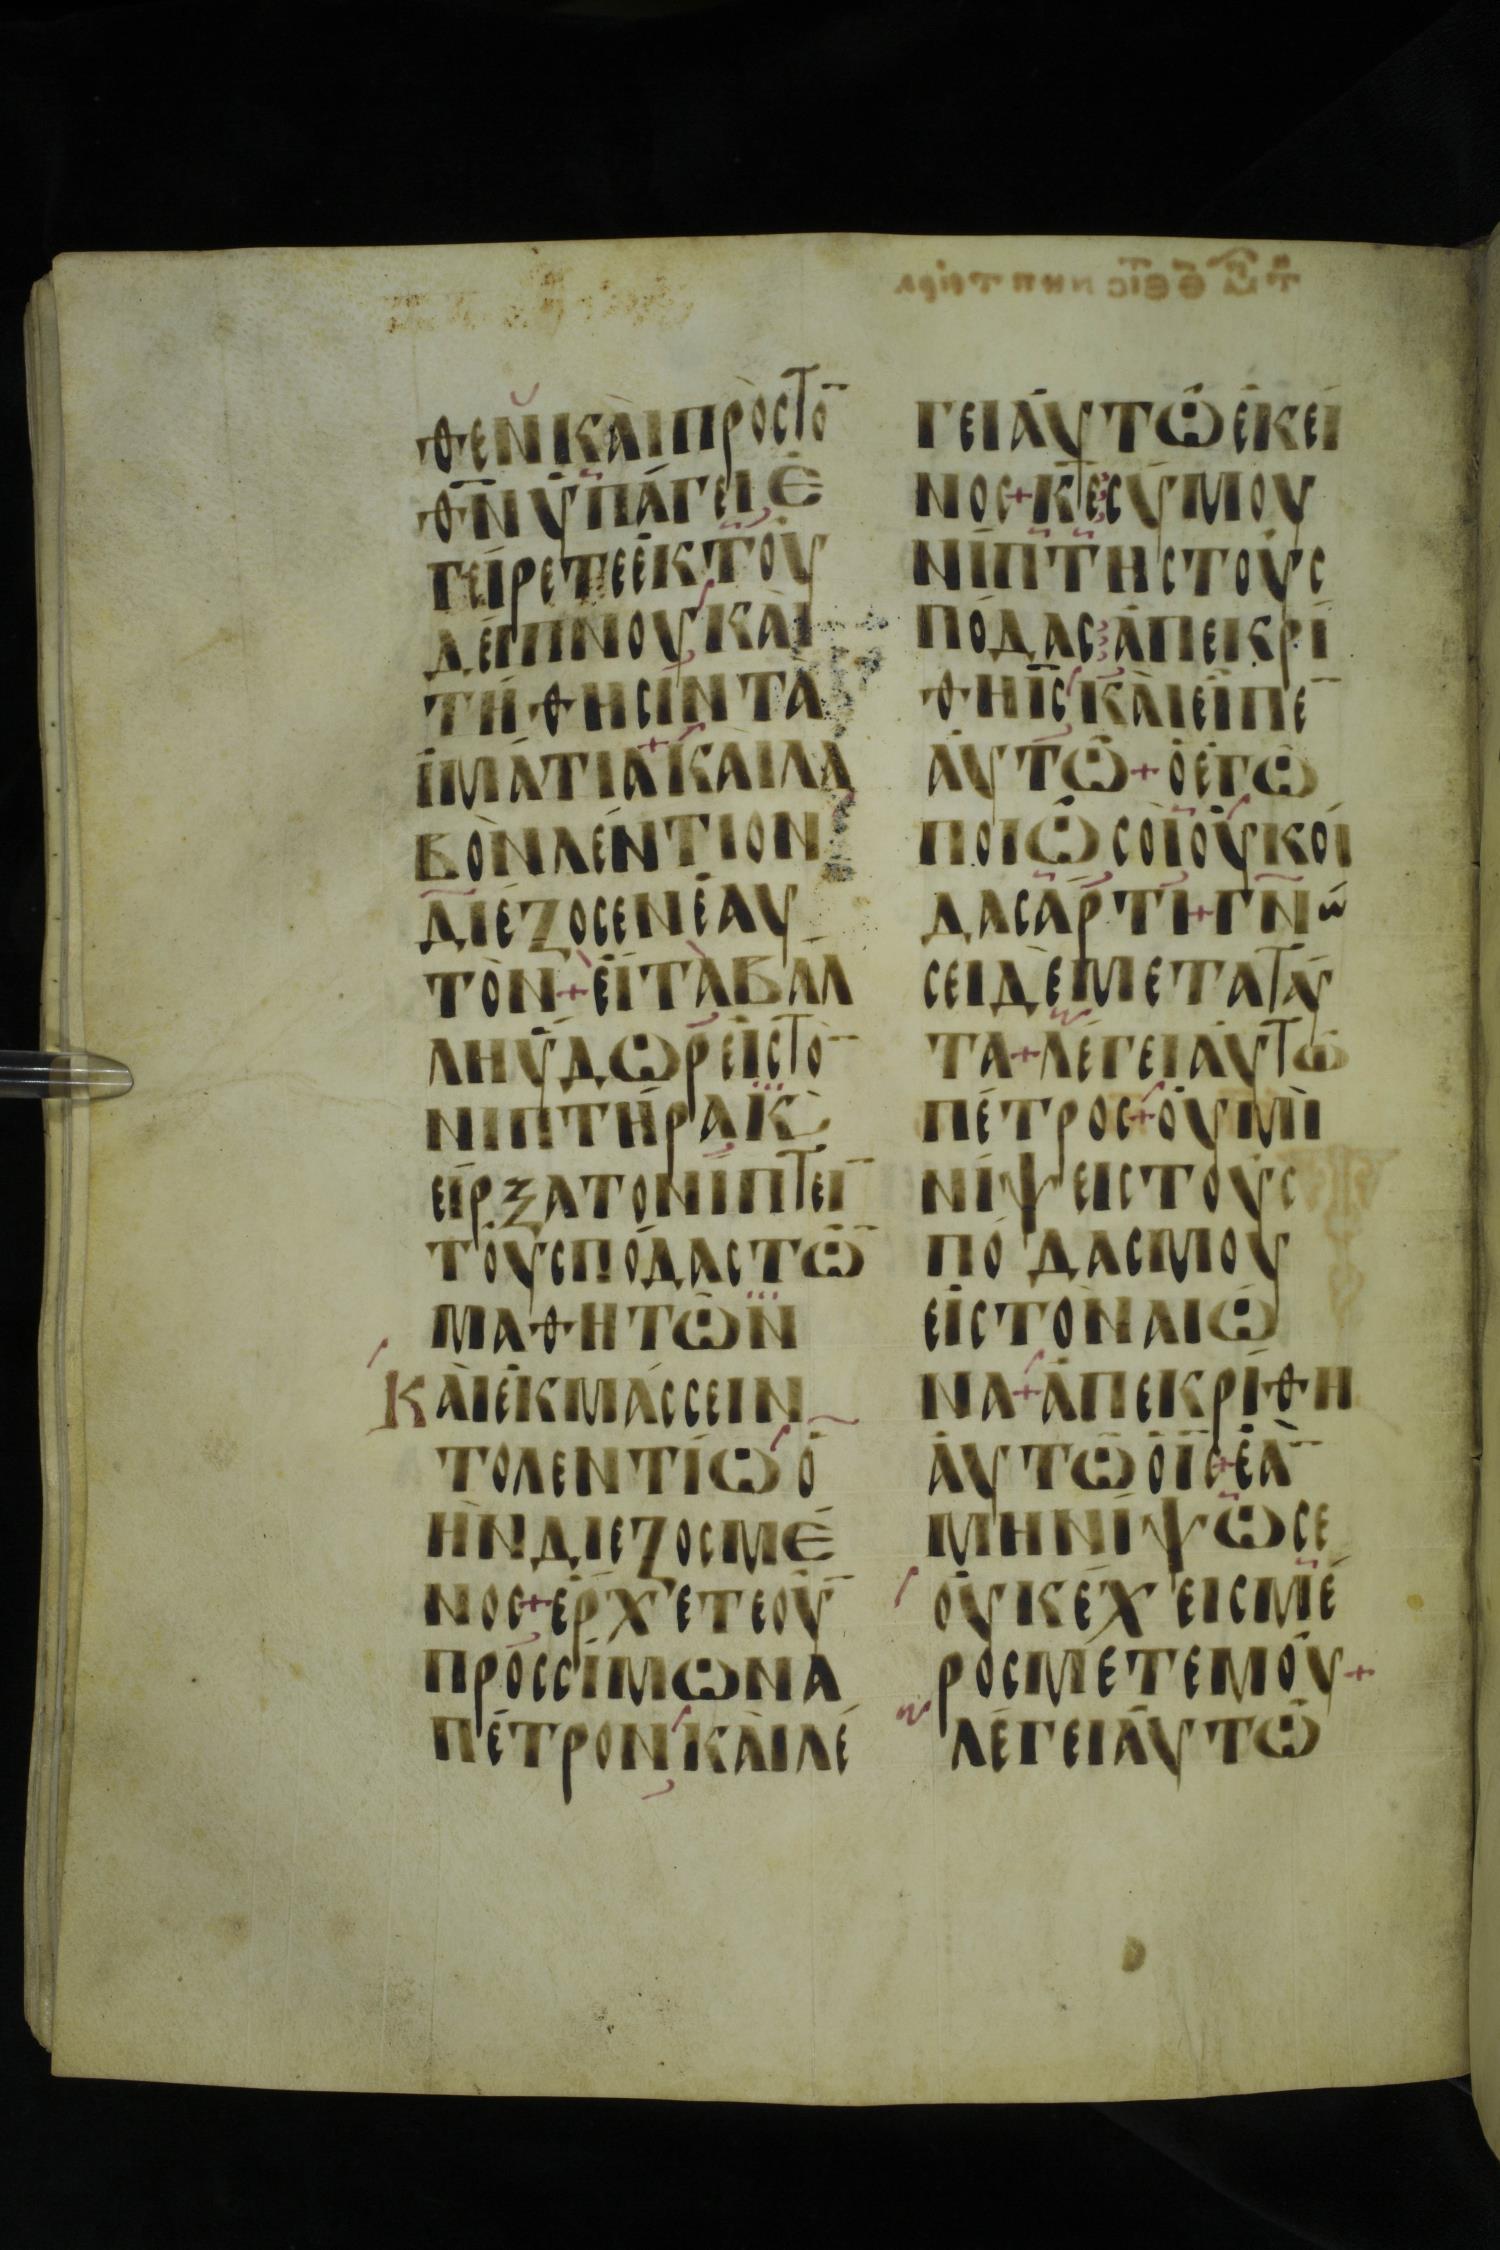 θεν καὶ πρὸς το̄
θ̄ν ὑπάγει ἐ
γείρετε ἐκ τοῦ
δείπνου καὶ
τήθησιν τὰ
ἱμάτια + καὶ λα
βὸν λέντιον
διέζοσεν ἑαυ
τὸν + εἶτα βάλ
λη ὕδωρ εἰς το̄
νιπτήρα κ̀
εἴρξατο νίπτεῑ
τοὺς πόδας τῶ̄
μαθητῶν
Καὶ ἐκμάσσειν
το λεντίω ὁ
ἦν διεζοσμέ
νος + ἔρχετε οὖ̄
πρὸς σίμωνα
πέτρον καὶ λέ
γει αὐτῶ ἐκεί
νος + κ̄ε σύ μου
νίπτης τοὺς
πόδας ἀπεκρί
θη ῑς καὶ εἶπε̄
αὐτῶ + ὃ ἐγὼ
ποιῶ σοὶ οὐκ οἶ
δας ἄρτι + γνώ
σει δὲ μετα ταῦ
τα + λέγει αὐτῶ
πέτρος + οὐ μὶ
νίψεις τοὺς
πόδας μου
εἰς τὸν αἰῶ
να + ἀπεκρίθη
αὐτῶ ὁ ῑς + ἐὰ̄
μη νίψω σε
οὐκ ἔχεις μέ
ρος μετ εμοῦ +
λέγει αὐτῶ